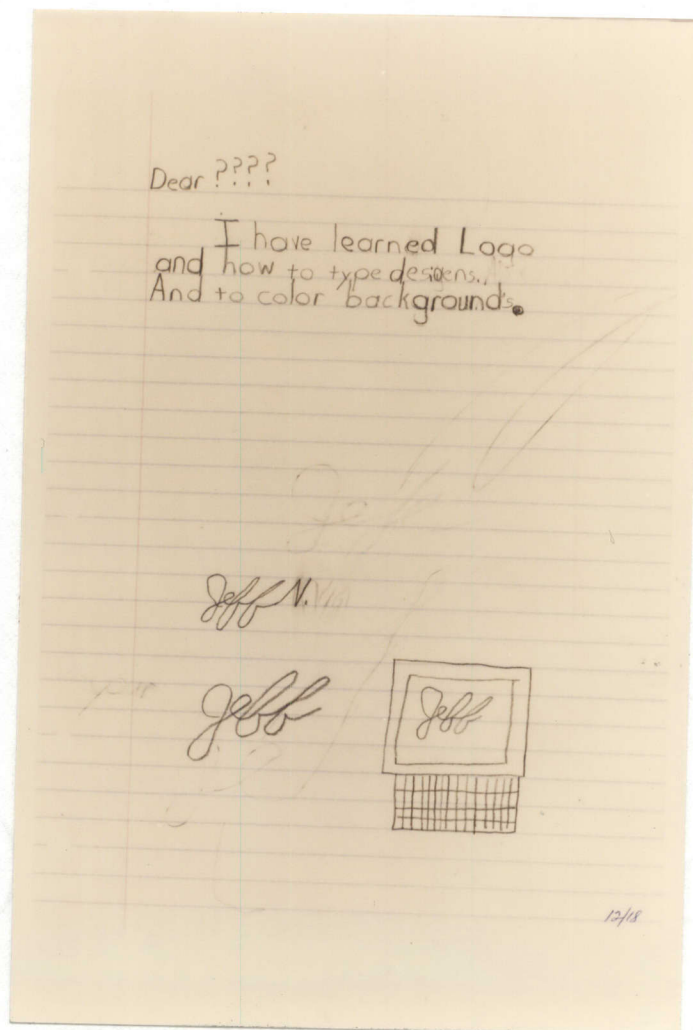 Dear ????
I have learned Logo
and how to type desigens.
And to color backgrounds.
Jeff N.
Jeff
Jeff
12/18